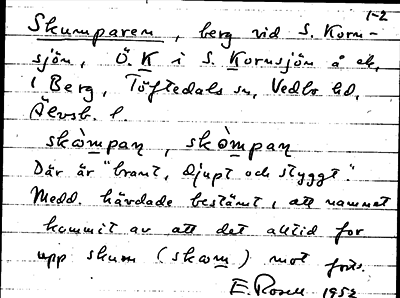 1-2
Skumparen, berg vid S. Korn-
sjön, Ö. K i S. Kornsjön å ek,
1 Berg, Töftedals sn, Vedbo hd,
Älvsb. l.
skòmpaɳ, skòmpaɳ
Där är "brant, djupt och styggt".
Medd. hävdade bestämt, att namnet
kommit av att det alltid for
upp skum (skom) mot
E. Rosell 1952